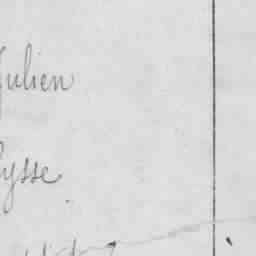 Julien
ysse